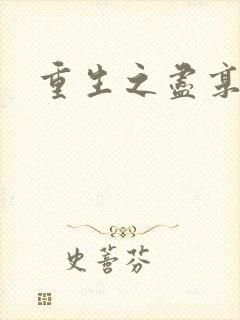 重生之盡享
史蕾芬